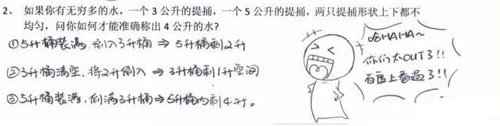 2、如果你有无穷多的水，一个 3 公升的提捅，一个 5 公升的提捅，两只提捅形状上下都不
均匀，问你如何才能准确称出 4 公升的水？
①5升桶装满,倒入3升桶 ⇒ 5升桶剩2升
②3升桶清空,将2升倒入 ⇒ 3升桶剩1升空间
③5升桶装满,倒满3升桶⇒5升桶内剩4升。
哈HAHA~
你们太OUT了!!
百度上看过了!!